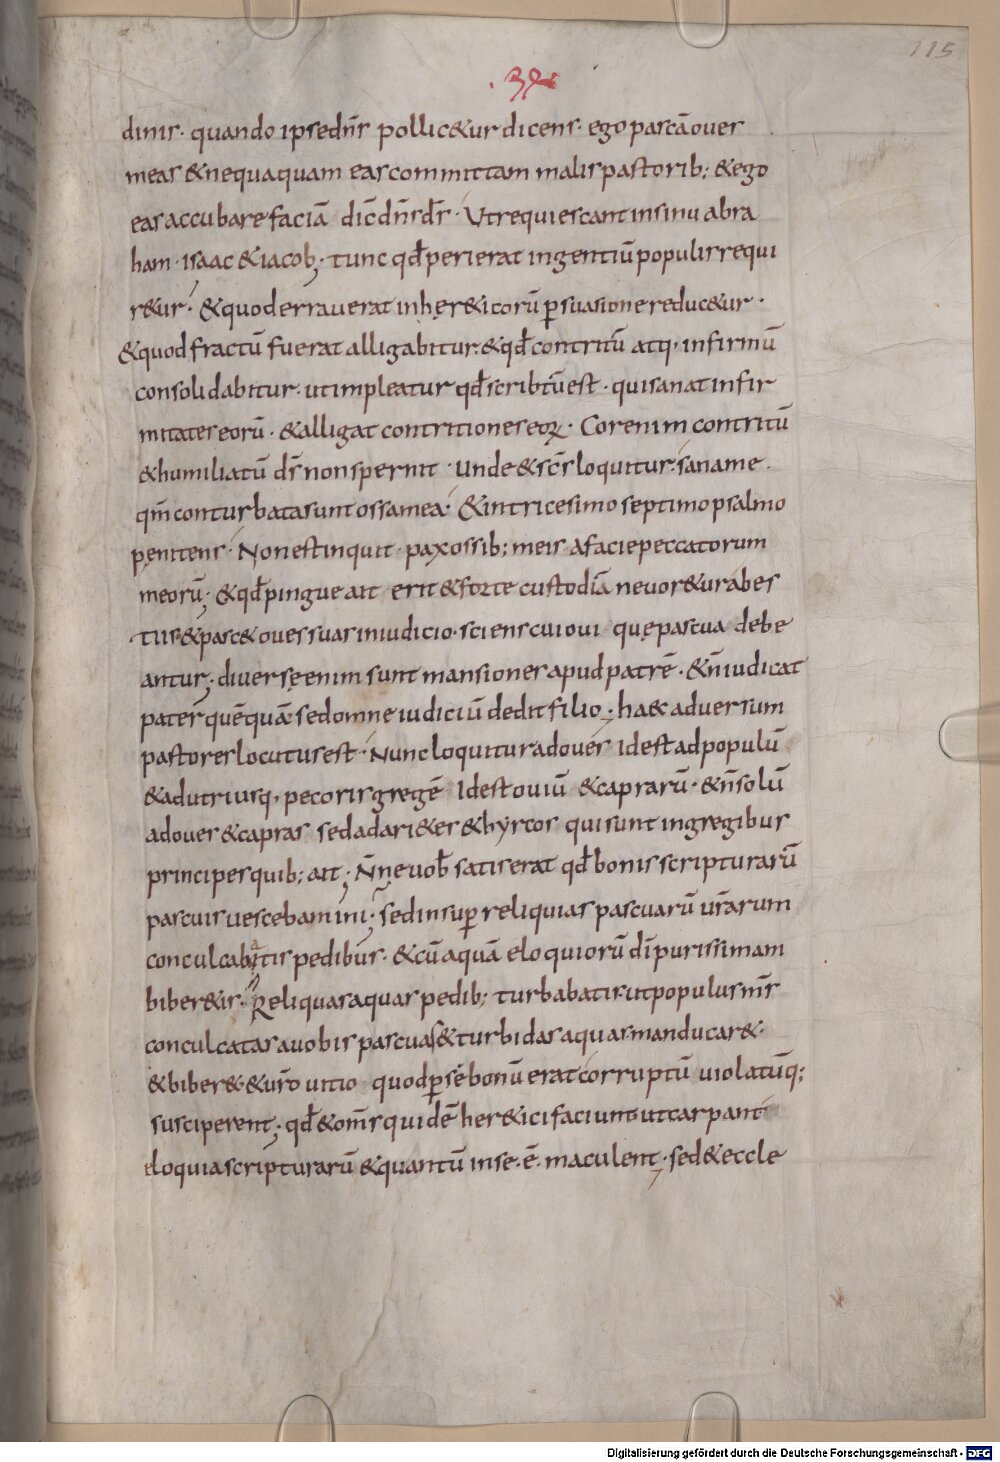 115
dinis· quando ipse dn̄s pollic&ur dicens· ego pascā oues
meas & nequaquam eas committam malis pastorib; & ego
eas accubare faciā dic̄ dn̄s ds̄· Ut requiescant in sinu abra
ham· isaac & iacob; tunc qđ perierat in gentiū populis requi
r&ur· & quod errauerat in hęr&icorū ꝑsuasione reduc&ur·
& quod fractū fuerat alligabitur· & qđ contritū atq· infirmū
consolidabitur· ut impleatur qđ scribtū est· qui sanat infir
mitates eorū· & alligat contritiones eoꝝ· Cor enim contritū
& humiliatū ds̄ non spernit· Unde & sc̄s loquitur· sana me·
qm̄ conturbata sunt ossa mea· & in tricesimo septimo psalmo
pęnitens· Non est inquit· pax ossib; meis a facie peccatorum
meorū; & qđ pingue ait erit & forte custodiā ne uor&ur a bes
tiis & pasc& oues suas in iudicio· sciens cui oui quę pascua debe
antur; diuersę enim sunt mansiones apud patrē· & n̄ iudicat
pater quēquā· sed omne iudiciū dedit filio; ha& aduersum
pastores locutus est· Nunc loquitur ad oues id est ad populū
& ad utriusq· pecoris gregē Id est ouiū & caprarū· & n̄ solū
ad oues & capras sed ad ari&es & hyrcos qui sunt in gregibus
principes quib; ait; Nn̄e uob̄ satis erat qđ bonis scripturarū
pascuis uescebamini; sed insuꝑ reliquias pascuarū ur̄arum
conculcabatis pedibus· & cū aquā eloquiorū dī purissimam
biber&is· Reliquas aquas pedib; turbabatis· ut populus ms̄
conculcatas a uobis pascuas & turbidas aquas manducar&·
& biber&· & ur̄o uitio quod ꝑ sē bonū erat corruptū uiolatūq;
susciperent; qđ & oms̄ quidē her&ici faciunt ut carpant
eloquia scripturarū & quantū in se· ē· maculent; sed & eccle
Digitalisierung gefördert durch die Deutsche Forschungsgemeinschaft - DFG